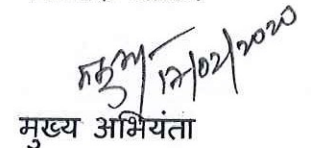 17/02/2020
मुख्य अभियंता